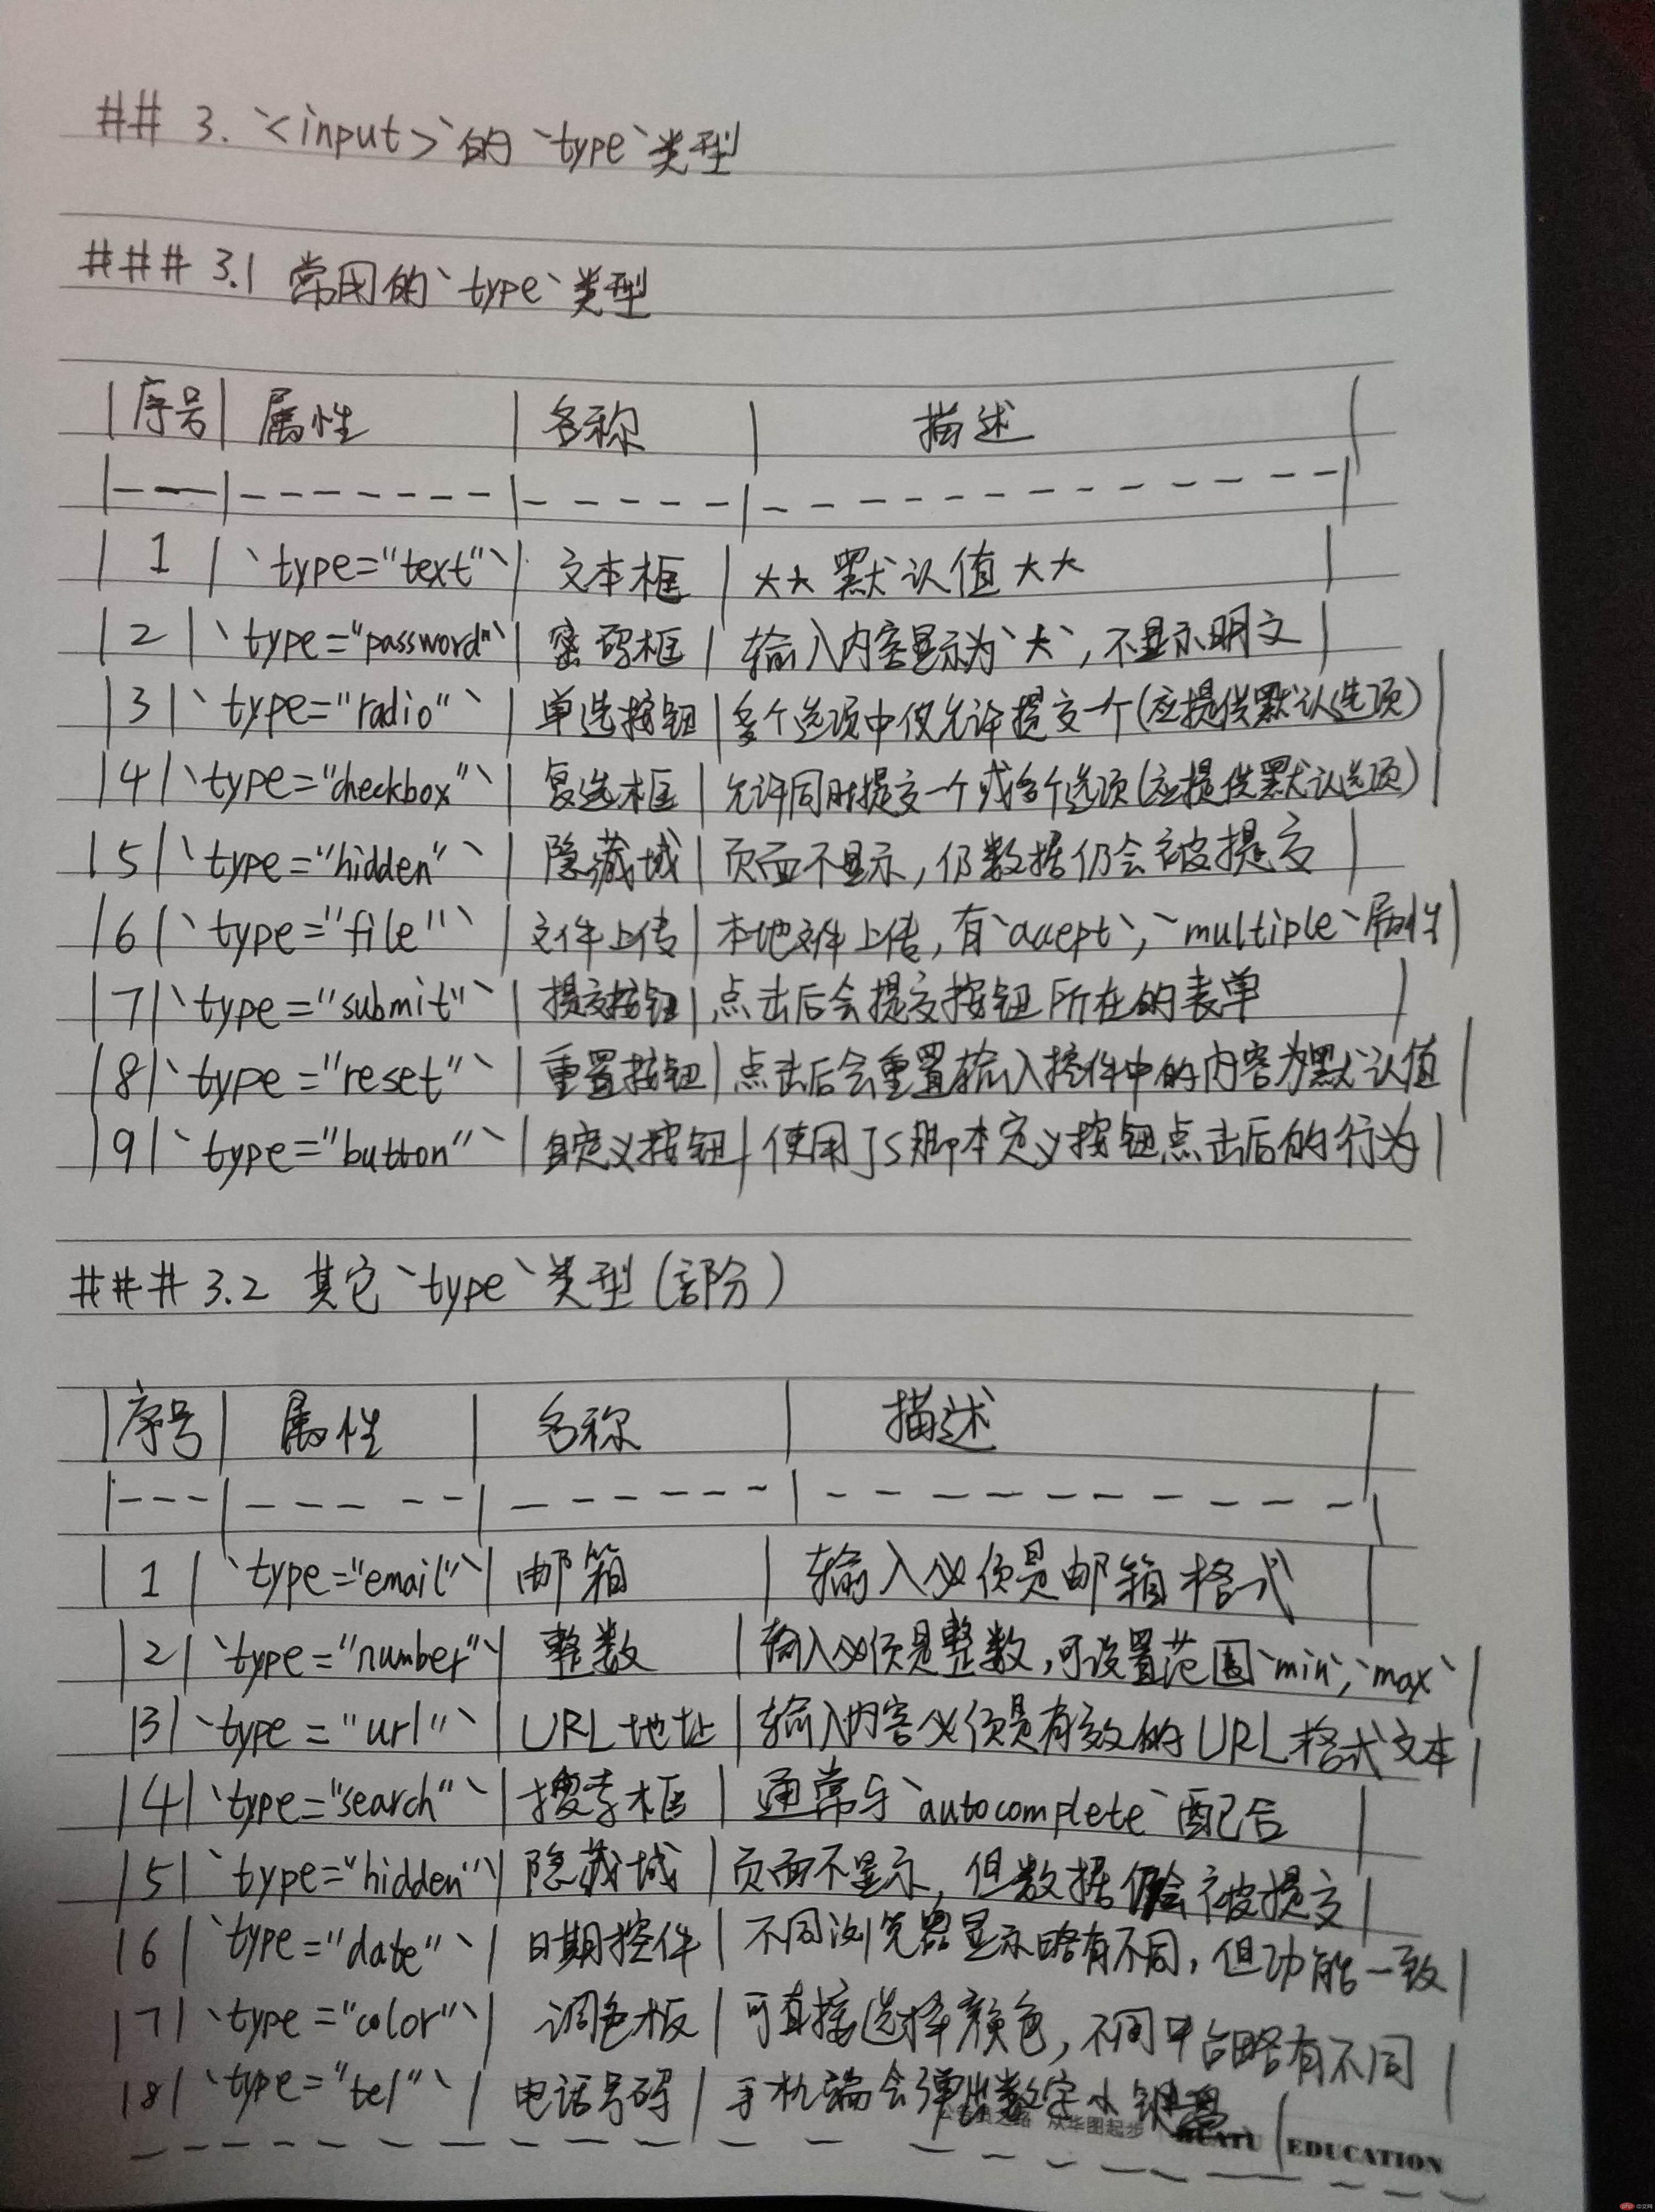 ## 3. `<input>`的`type`类型
### 3.1 常用的`type`类型
|序号| 属性 | 名称 | 描述 |
|---|-------|-----|-------------|
| 1 | `type="text"`| 文本框 | **默认值** |
| 2 | `type="password"`| 密码框 | 输入内容显示为`*`,不显示明文 |
|3|`type="radio"` | 单选按钮 |多个选项中仅允许提交一个(应提供默认选项)|
|4|`type="checkbox"`| 复选框 | 允许同时提交一个或多个选项(应提供默认选项)|
|5|`type="hidden"` | 隐藏域 | 页面不显示,仍数据仍会被提交 |
|6|`type="file"` | 文件上传 | 本地文件上传,有`accept`,`multiple`属性|
|7|`type="submit"` | 提交按钮 | 点击后会提交按钮所在的表单 |
|8|`type="reset"` | 重置按钮 | 点击后会重置输入控件中的内容为默认值 |
|9|`type="button"` | 自定义按钮 | 使用JS脚本定义按钮点击后的行为 |
### 3.2 其它`type`类型(部分)
|序号| 属性 | 名称 | 描述 |
|---|------|-------|-----------|
| 1 | `type="email"`| 邮箱 | 输入必须是邮箱格式 |
|2| `type="number"`| 整数 | 输入必须是整数,可设置范围`min`,`max` |
|3|`type="url"` | URL地址 | 输入内容必须是有效的URL格式文本 |
|4|`type="search"`| 搜索框 | 通常与`autocomplete`配合 |
|5| `type="hidden"`| 隐藏域 | 页面不显示,但数据仍会被提交 |
|6| `type="date"` | 日期控件 | 不同浏览器显示略有不同,但功能一致 |
|7|`type="color"`| 调色板 | 可直接选择颜色,不同平台略有不同 |
|8|`type="tel"` | 电话号码 | 手机端会弹出数字小键盘 |
从华图起步 HUATU EDUCATION
php 中文网